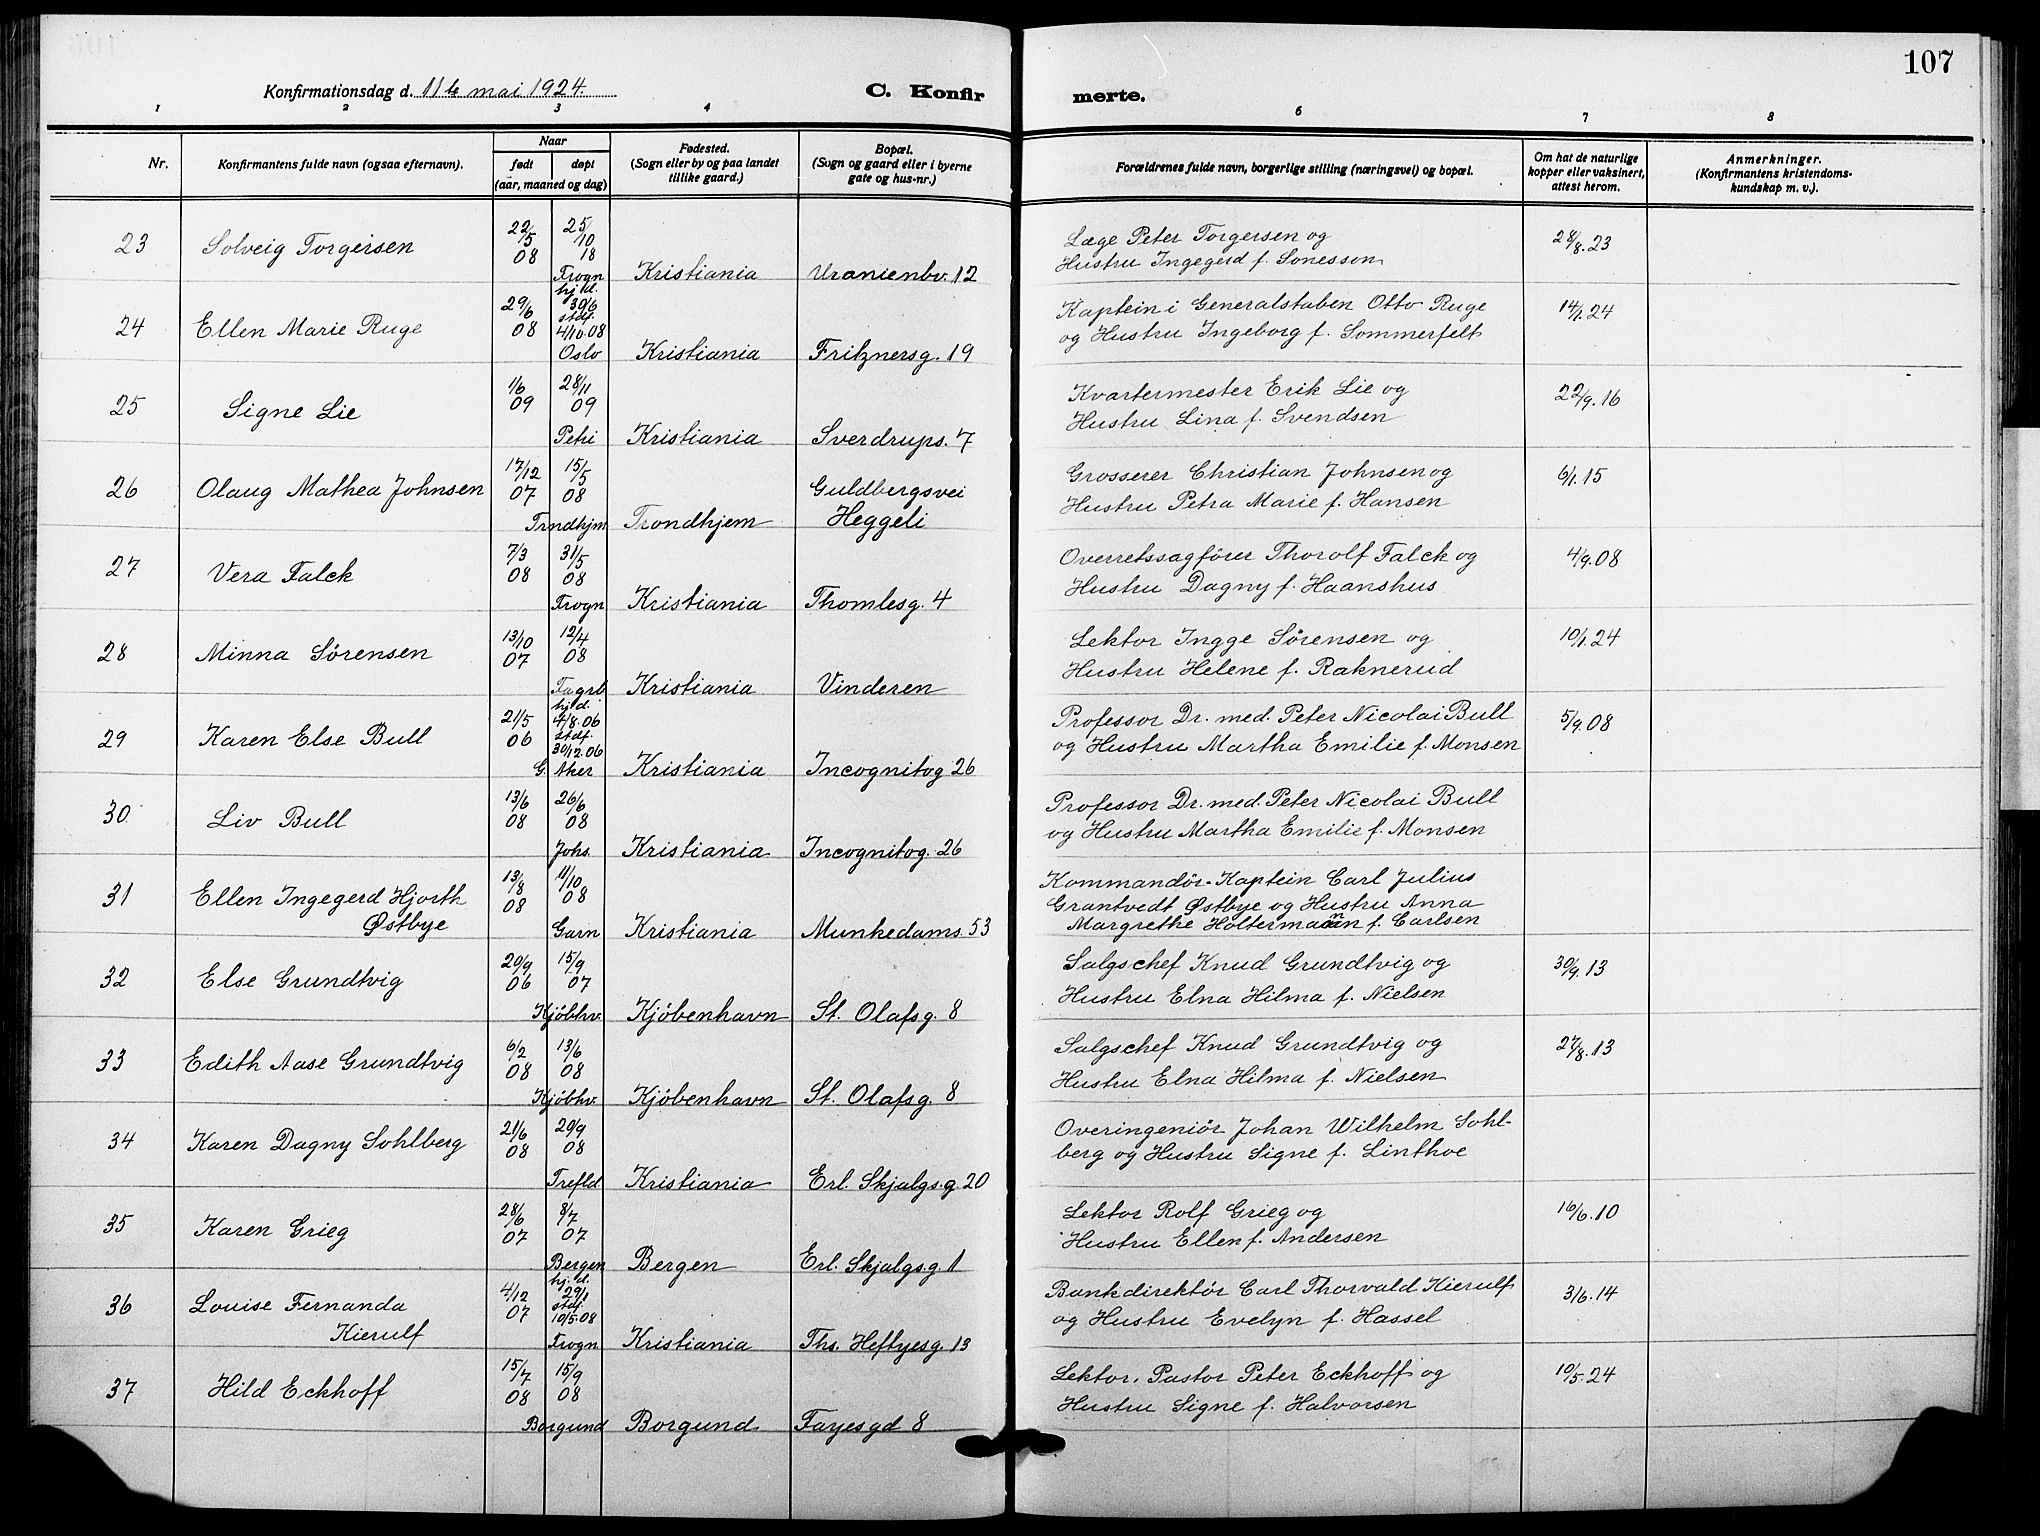 107
Konfirmationsdag d. 11te mai 1924.
C. Konfir
merte.
1 2 3 4 6 7 8
Nr.
Konfirmantens fulde navn (ogsaa efternavn).
Naar
født døpt
(aar, maaned og dag)
Fødested.
(Sogn eller by og paa landet
tillike gaard.)
Bopæl.
(Sogn og gaard eller i byerne
gate og hus-nr.)
Forældrenes fulde navn, borgerlige stilling (næringsvei) og bopæl.
Om hat de naturlige
kopper eller vaksinert,
attest herom.
Anmerkninger.
(Konfirmantens kristendoms-
kundskap m. v.).
23 Solveig Torgersen 22/5 08 25/10 18 Læge Peter Torgersen og 28/8.23
Frogn Kristiania Uranienbv. 12 Hustru Ingegerd f. Sonesson
24 Ellen Marie Ruge 29/6 08 hj.d. 30/6 stdf. 4/10.08 Kaptein i Generalstaben Otto Ruge 14/1.24
Oslo Kristiania Fritznersg. 19 og Hustru Ingeborg f. Sommerfelt
25 Signe Lie 1/6 09 28/11 09 Kvartermester Erik Lie og 22/9.16
Petri Kristiania Sverdrups. 7 Hustru Lina f. Svendsen
26 Olaug Mathea Johnsen 17/12 07 15/5 08 Guldbergsvei Grosserer Christian Johnsen og 6/1.15
Trndhjm Trondhjem Heggeli Hustru Petra Marie f. Hansen
27 Vera Falck 7/3 08 31/5 08 Overretssagfører Thorolf Falck og 4/9.08
Frogn Kristiania Thomlesg. 4 Hustru Dagny f. Haanshus
28 Minna Sørensen 13/10 07 12/4 08 Lektor Ingge Sørensen og 10/1.24
Fagrb Kristiania Vinderen Hustru Helene f. Raknerud
29 Karen Else Bull 21/5 06 hj.d. 4/8.06 stdf. 30/12.06 Professor Dr. med. Peter Nicolai Bull 5/9.08
G. Aker Kristiania Incognitog 26 og Hustru Martha Emilie f. Monsen
30 Liv Bull 13/6 08 26/6 08 Professor Dr. med. Peter Nicolai Bull
Johs. Kristiania Incognitog. 26 og Hustru Martha Emilie f. Monsen
31 Ellen Ingegerd Hjorth 13/8 08 11/10 08 Kommandør-Kaptein Carl Julius
Østbye Grantvedt Østbye og Hustru Anna
Garn Kristiania Munkedams. 53 Margrethe Holtermann f. Carlsen
32 Else Grundtvig 29/9 06 15/9 07 Salgschef Knud Grundtvig og 30/9.13
Kjøbhv. Kjøbenhavn St. Olafsg. 8 Hustru Elna Hilma f. Nielsen
33 Edith Aase Grundtvig 6/2 08 13/6 08 Salgschef Knud Grundtvig og 27/8.13
Kjøbhv. Kjøbenhavn St. Olafsg. 8 Hustru Elna Hilma f. Nielsen
34 Karen Dagny Sohlberg 21/6 08 29/9 08 Overingeniør Johan Wilhelm Sohl-
Trefld Kristiania Erl. Skjalgs.g. 20 berg og Hustru Signe f. Linthoe
35 Karen Grieg 28/6 07 8/7 07 Lektor Rolf Grieg og 16/6.10
Bergen Bergen Erl. Skjalgs.g. 1 Hustru Ellen f. Andersen
36 Louise Fernanda 4/12 07 hj.d. 29/1 stdf. 10/5.08 Bankdirektør Carl Thorvald Kierulf 3/6.14
Kierulf Frogn Kristiania Ths. Heftyesg. 13 og Hustru Evelyn f. Hassel
37 Hild Eckhoff 15/7 08 15/9 08 Lektor, Pastor Peter Eckhoff og 10/5.24
Borgund Borgund Fayesgd 8 Hustru Signe f. Halvorsen